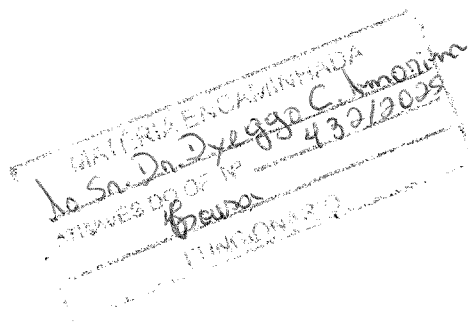 MATÉRIA ENCAMINHADA
Ao Sr. Dr. Dyeggo C. Amorim
ATRAVÉS DO OF Nº 432/2025
FUNCIONÁRIO